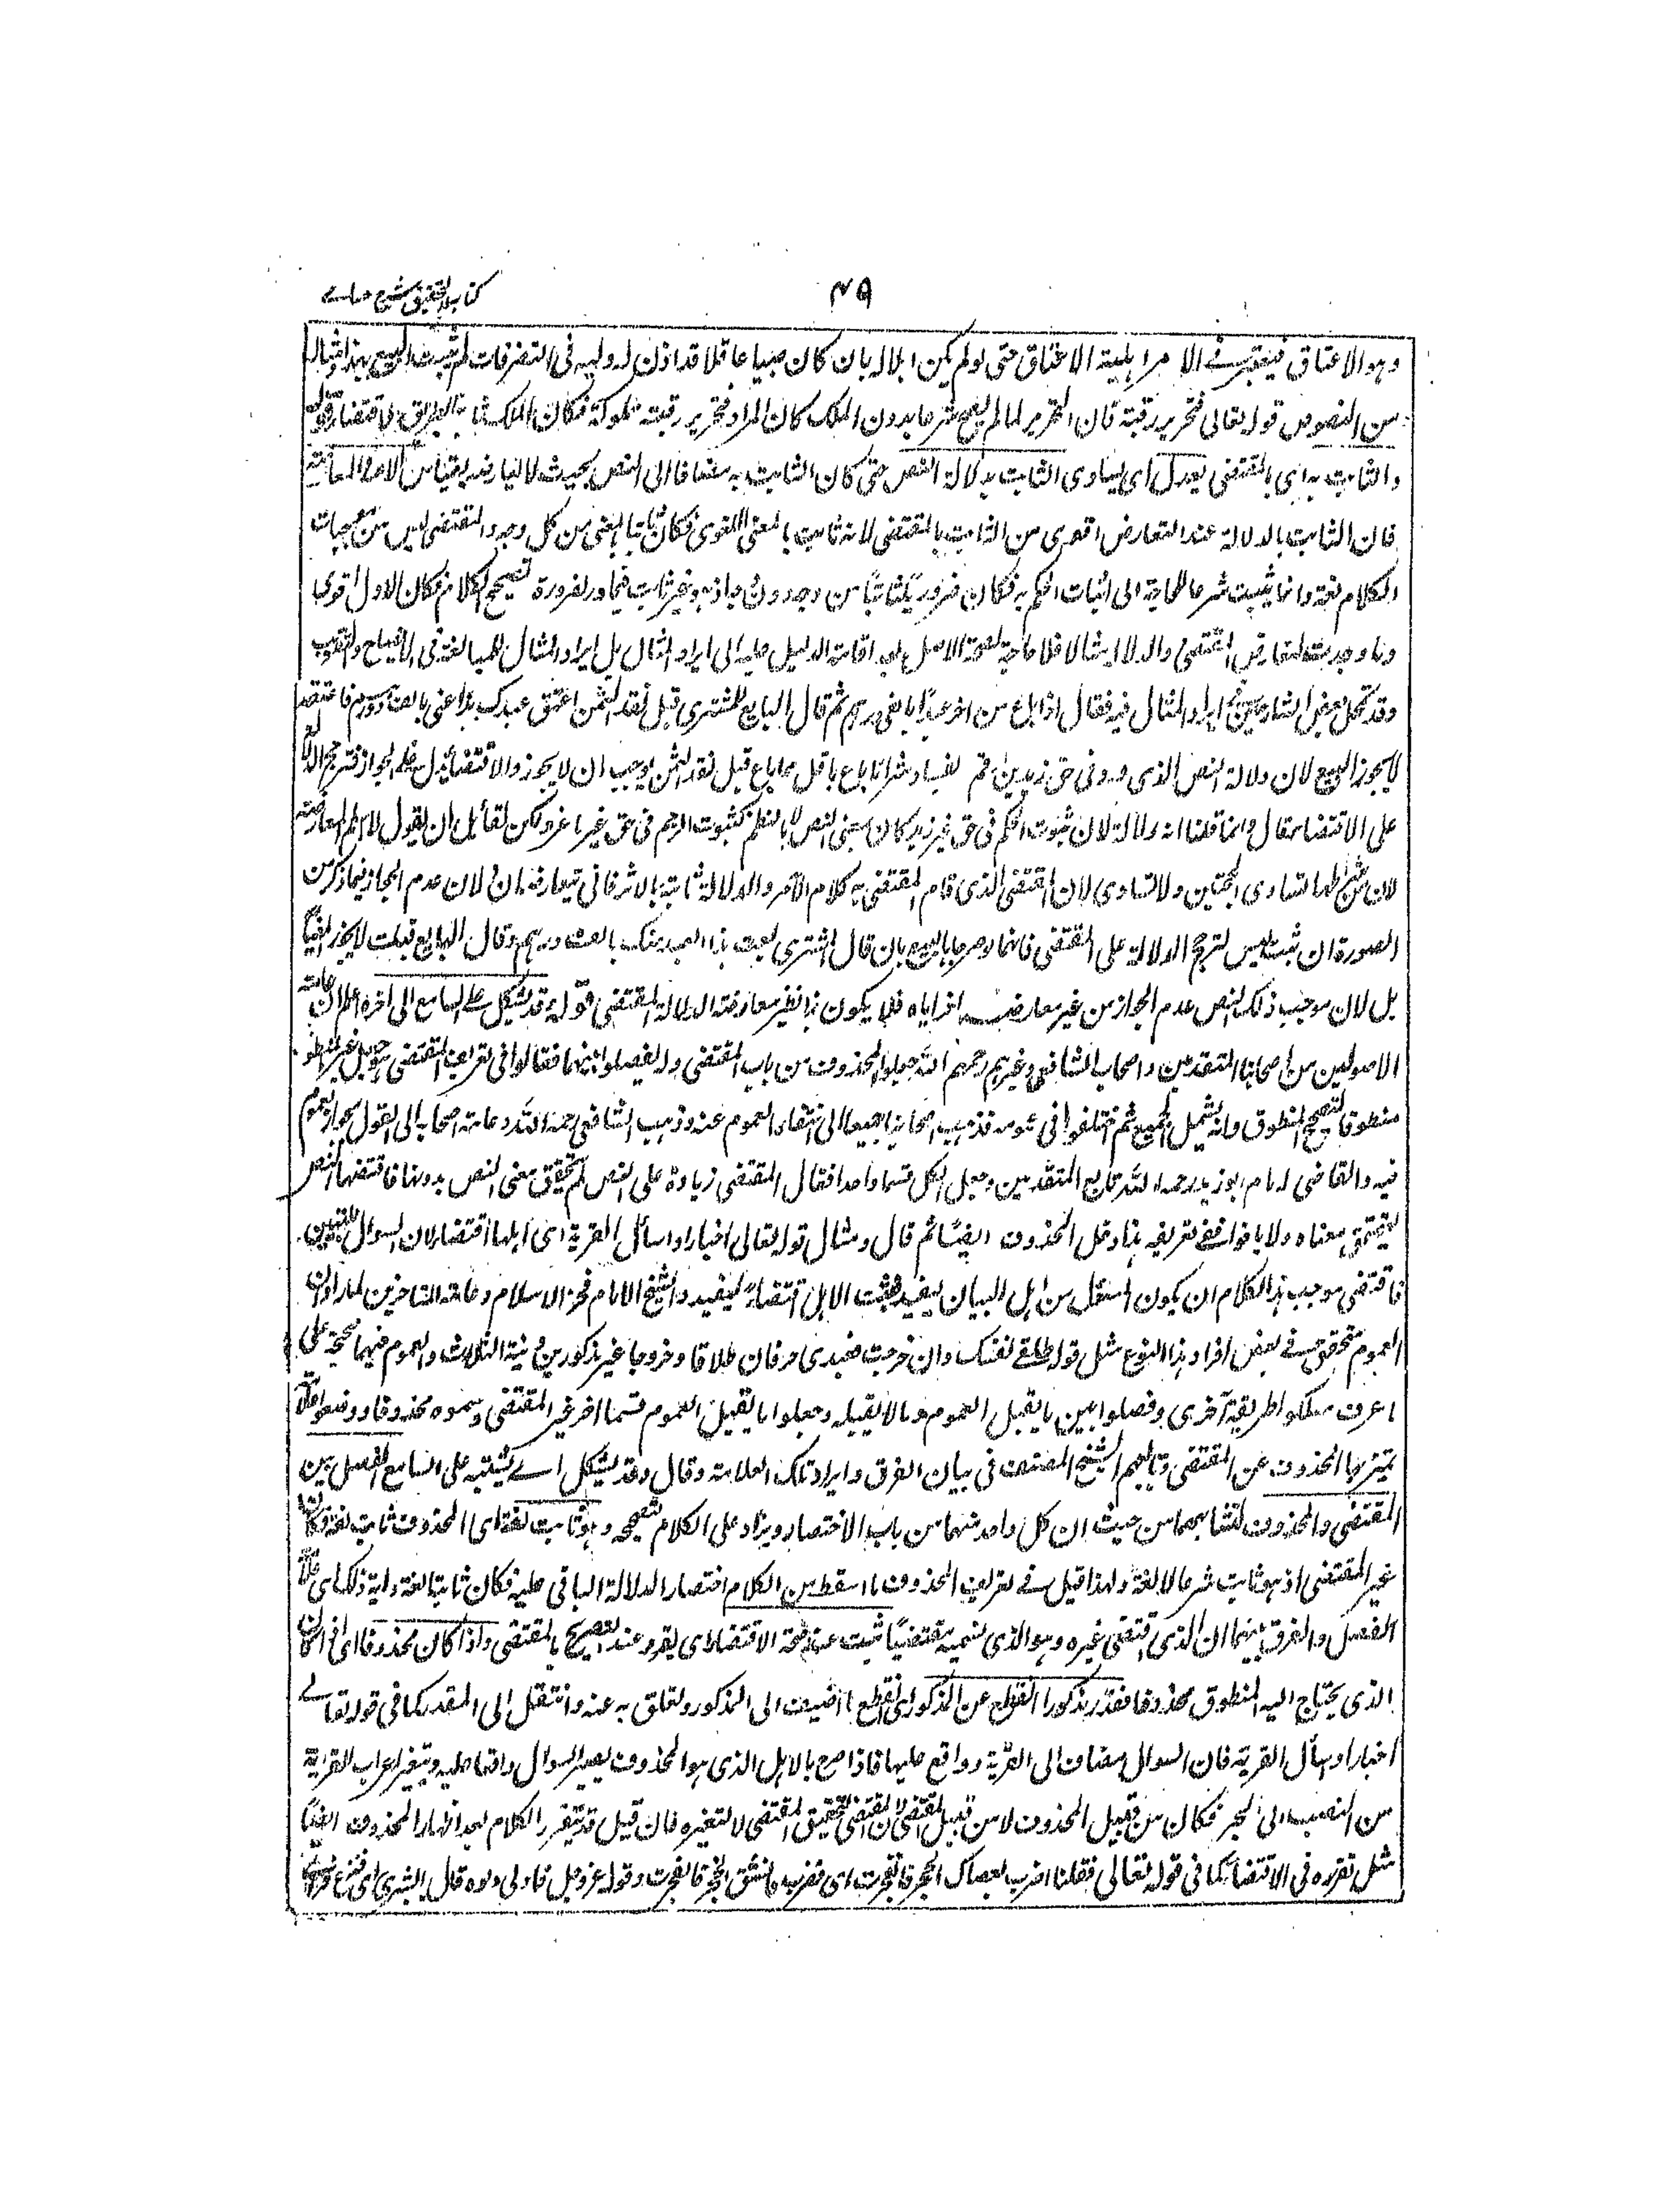 ٤٩
كتاب التحقيق شرح حسامى
وهو الاعتاق فيعتبر فى الامر اهلية الاعتاق حتى لو لم يكن اهلا له بان كان صبيا عاقلا قد اذن له وليه فى التصرفات لم يثبت البيع بهذا ومثاله
من النصوص قوله تعالى فتحرير رقبة فان التحرير لما لم يصح شرعا بدون الملك كان المراد فتحرير رقبة مملوكة فكان الملك ثابتا بطريق الاقتضاء قوله
والثابت به اى بالمقتضى يعدل اى يساوى الثابت بدلالة النص حتى كان الثابت به مضافا الى النص بحيث لا يعارضه القياس الا عند المعارضة
فان الثابت بالدلالة عند التعارض اقوى من الثابت بالمقتضى لانه ثابت بالمعنى اللغوى فكان ثابتا بالمعنى من كل وجه والمقتضى ليس من موجبات
الكلام لغة وانما يثبت شرعا للحاجة الى اثبات الحكم به فكان ضروريا ثابتا من وجه دون وجه اذ هو غير ثابت فيما وراء ضرورة تصحيح الكلام فكان الاول اقوى
وما وجدت لتعارض المقتضى والدلالة مثالا فلا حاجة لصحة الاصل بعد اقامة الدليل عليه الى ايراد المثال بل ايراد المثال للمبالغة فى الايضاح والتقريب
وقد تمحل بعض الشارحين فى ايراد المثال فيه فقال اذا باع من اخر عبدا بالفى درهم ثم قال البايع للمشترى قبل نقد الثمن اعتق عبدك هذا عنى بالف درهم فاعتقه
لا يجوز البيع لان دلالة النص الذى ورد فى حق زيد بن ارقم لفساد شراء ما باع باقل مما باع قبل نقد الثمن يوجب ان لا يجوز والاقتضاء يدل على الجواز فترجح الدلالة
على الاقتضاء قال وانما قلنا انه دلالة لان ثبوت الحكم فى حق غير زيد كان بمعنى النص لا بالنظم كثبوت الرجم فى حق غير ماعز ولكن لقائل ان يقول لا نسلم المعارضة
لان من شرطها تساوى الحجتين ولا تساوى لان المقتضى الذى قام المقتضى به كلام الآمر والدلالة ثابتة بالاثر فانى يتعارضان ولان عدم الجواز فيما ذكر من
الصورة ان ثبت ليس لترجح الدلالة على المقتضى فانهما لو صرحا بالبيع بان قال المشترى بعت هذا العبد منك بالف درهم وقال البايع قبلت لا يجوز ايضا
بل لان موجب ذلك النص عدم الجواز من غير معارضة اخر اياه فلا يكون هذا نظير معارضة الدلالة المقتضى قوله وقد يشكل على السامع الى اخره اعلم ان عامة
الاصوليين من اصحابنا المتقدمين واصحاب الشافعى وغيرهم رحمهم الله جعلوا المحذوف من باب المقتضى ولم يفصلوا بينهما فقالوا فى تعريف المقتضى هو جعل غير المنطوق
منطوقا لتصحيح المنطوق وانه يشمل الجميع ثم اختلفوا فى عمومه فذهب اصحابنا جميعا الى انتفاء العموم عنه وذهب الشافعى رحمه الله وعامة اصحابه الى القول بجواز العموم
فيه والقاضى الامام ابو زيد رحمه الله تابع المتقدمين وجعل الكل قسما واحدا فقال المقتضى زيادة على النص لم يتحقق معنى النص بدونها فاقتضاها النص
ليتحقق معناه ولا يلغو ففى تعريفه هذا دخل المحذوف ايضا ثم قال ومثال قوله تعالى اخبارا واسأل القرية اى اهلها اقتضاء لان السوال للتبيين
فاقتضى موجب هذا الكلام ان يكون المسئول من اهل البيان ليفيد فثبت الاهل اقتضاء ليفيد والشيخ الامام فخر الاسلام وعامة المتاخرين لما راوا ان
العموم متحقق فى بعض افراد هذا النوع مثل قوله طلقى نفسك وان خرجت فعبدى حر فان طلاقا وخروجا غير مذكورين ونية الثلاث والعموم فيهما صحيحة على
ما عرف سلكوا طريقة اخرى وفصلوا بين ما يقبل العموم وما لا يقبله وجعلوا ما يقبل العموم قسما اخر غير المقتضى وسموه محذوفا ووضعوا علامة
تميز بها المحذوف عن المقتضى وتابعهم الشيخ المصنف فى بيان الفرق وايراد تلك العلامة وقال وقد يشكل اى يشتبه على السامع الفصل بين
المقتضى والمحذوف لتشابههما من حيث ان كل واحد منهما من باب الاختصار ويزاد على الكلام لتصحيحه وهو ثابت لغة اى المحذوف ثابت لغة وكان
غير المقتضى اذ هو ثابت شرعا لا لغة ولهذا قيل فى تعريف المحذوف ما اسقط من الكلام اختصارا لدلالة الباقى عليه فكان ثابتا لغة واية ذلك اى علامة
الفصل والفرق بينهما ان الذى اقتضى غيره وهو الذى نسميه مقتضيا ثبت عند صحة الاقتضاء اى يقرر عند التصريح بالمقتضى واذا كان محذوفا اى اذا كان
الذى يحتاج اليه المنطوق محذوفا فقدر مذكورا انقطع عن المذكور اى انقطع ما اضيف الى المذكور وتعلق به عنه وانتقل الى المقدر كما فى قوله تعالى
اخبارا وسأل القرية فان السوال مضاف الى القرية وواقع عليها فاذا صرح بالاهل الذى هو المحذوف يصير السوال واقعا عليه ويتغير اعراب القرية
من النصب الى الجر فكان من قبيل المحذوف لا من قبيل المقتضى لان المقتضى لتحقيق المقتضى لا لتغيره فان قيل قد يتقرر الكلام بعد اظهار المحذوف ايضا
مثل تقرره فى الاقتضاء كما فى قوله تعالى فقلنا اضرب بعصاك الحجر فانفجرت اى فضرب فانشق الحجر فانفجرت وقوله عز وجل فادلى دلوه قال يا بشرى اى فنزع